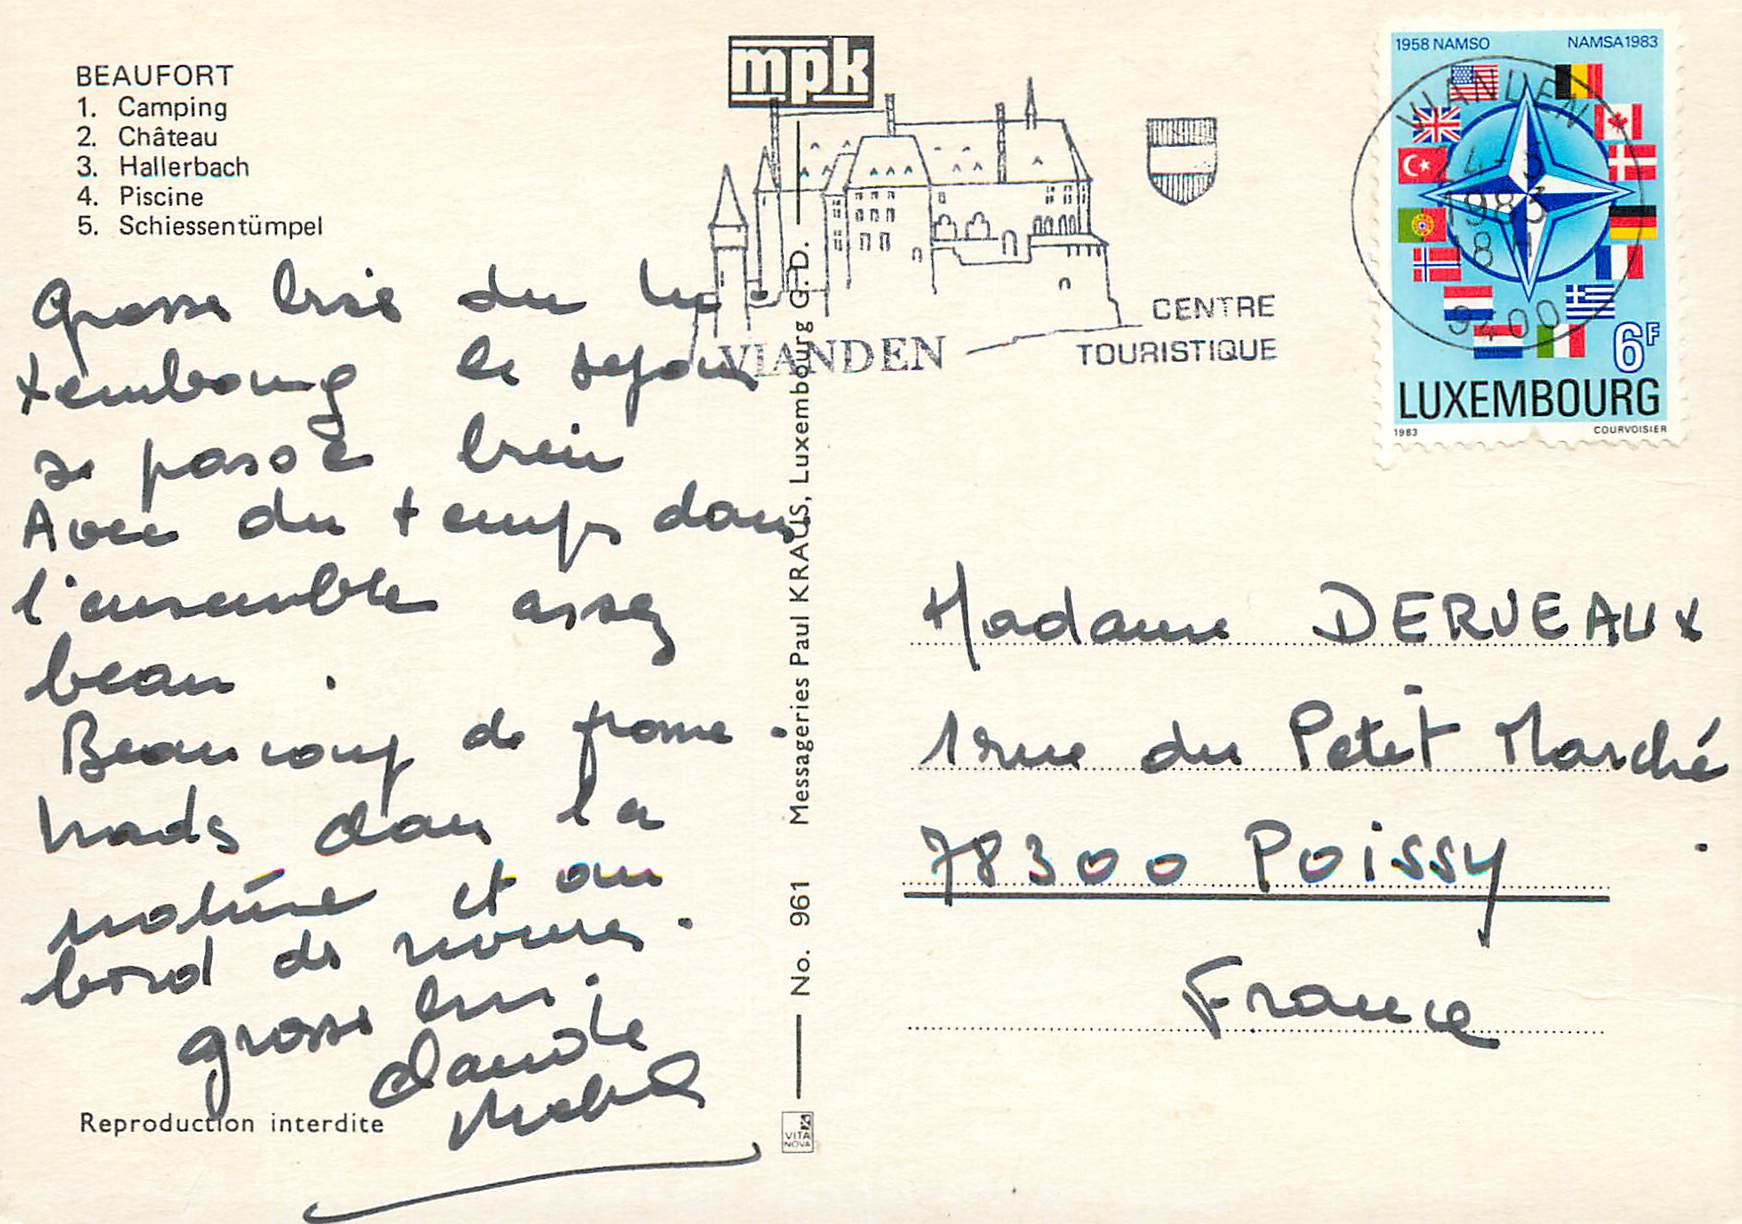 BEAUFORT
1. Camping
2. Château
3. Hallerbach
4. Piscine
5. Schiessentümpel
mpk
CENTRE
TOURISTIQUE
VIANDEN
1958 NAMSO NAMSA 1983
VIANDEN
1983
9400
6F
LUXEMBOURG
1983 COURVOISIER
Grosse bise du
le séjour
se passe bien
Avec du temps dans
l'ensemble assez
beau.
Beaucoup de prome-
nads dans la
nature et au
bord de
grosse
Claude
Reproduction interdite
No. 961 Messageries Paul KRAUS, Luxembourg G.D.
VITA
NOVA
Madame DERVEAUX
1 rue du Petit Marché
78300 POISSY
France